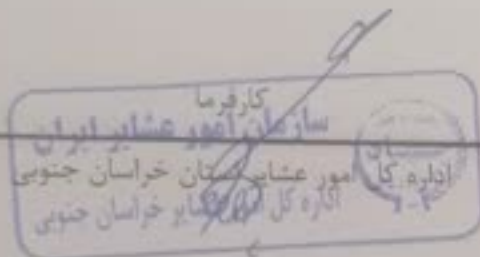 کارفرما
سازمان امور عشایر ایران
اداره کل امور عشایر استان خراسان جنوبی
اداره کل امور عشایر خراسان جنوبی